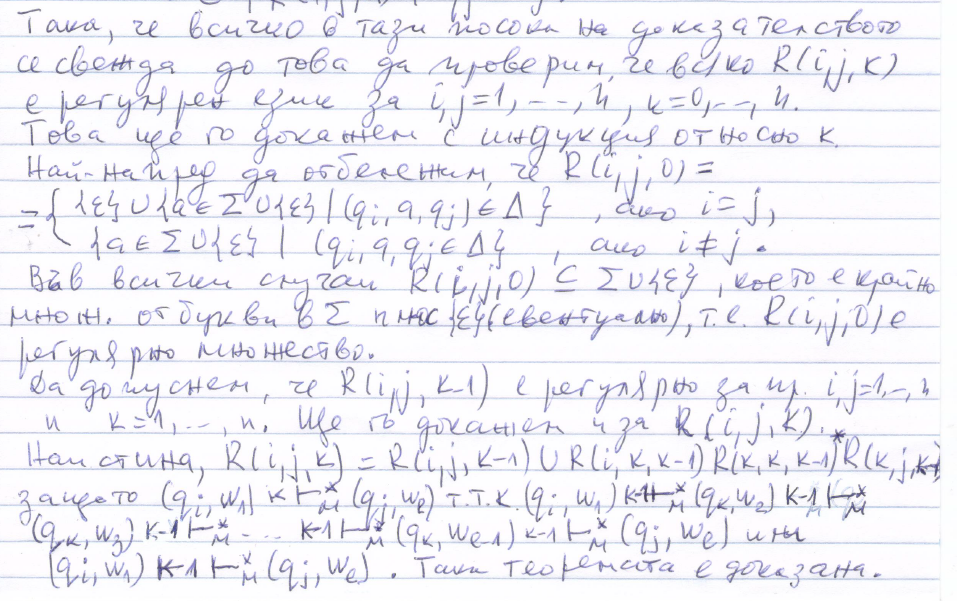 Така, че всичко в тази посока на доказателството
се свежда до това да проверим, че всяко R(i,j,k)
е регулярен език за i,j=1,--,n, k=0,--,n.
Това ще го докажем с индукция относно k.
Най-напред да отбележим, че R(i,j,0)=
={ {ε}∪{a∈Σ∪{ε}|(qi,a,qj)∈Δ} , ако i=j,
{a∈Σ∪{ε}| (qi,a,qj∈Δ} , ако i≠j.
Във всички случаи R(i,j,0) ⊆ Σ∪{ε}, което е крайно
множ. от букви в Σ плюс {ε}(евентуално), т.е. R(i,j,0) е
регулярно множество.
Да допуснем, че R(i,j,k-1) е регулярно за пр. i,j=1,-,n
и k=1,--,n. Ще го докажем и за R(i,j,k).
Наистина, R(i,j,k)=R(i,j,k-1)∪R(i,k,k-1)R(k,k,k-1)*R(k,j,k-1)
защото (qi,w1) k⊢*M (qj,we) т.т.к. (qi,w1) k-1⊢*M (qk,w2) k-1⊢*M
(qk,w3) k-1⊢*M ... k-1⊢*M (qk,we-1) k-1⊢*M (qj,we) или
(qi,w1) k-1⊢*M (qj,we). Така теоремата е доказана.